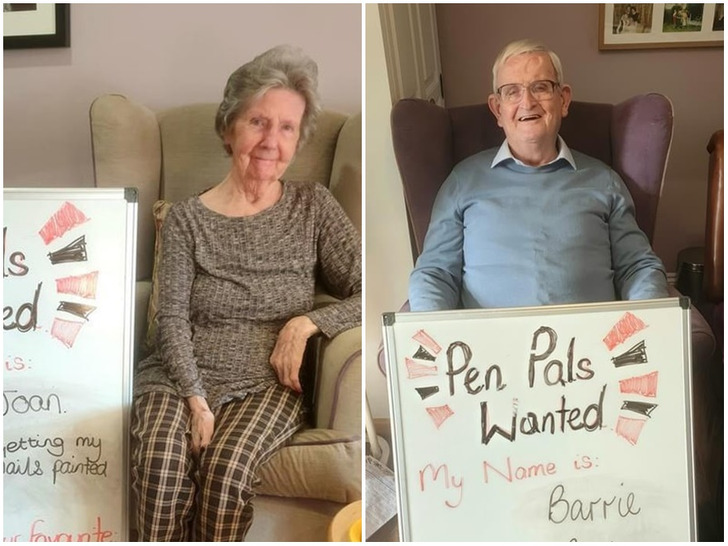 ls
ed
is:
Joan.
etting my
nails painted
ur favourite
Pen Pals
Wanted
My Name is:
Barrie